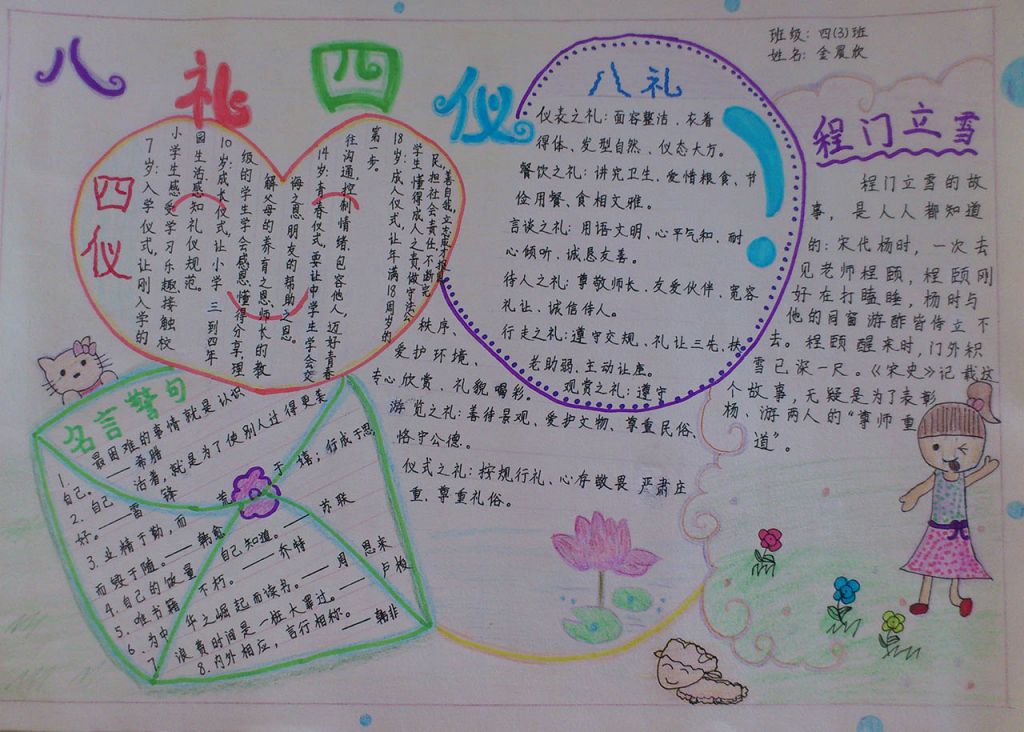 八礼四仪
班级：四(3)班
姓名：金晨欣
四仪
7岁：入学仪式，让刚入学的
小学生感受学习乐趣接触校
园生活感知礼仪规范。
10岁：成长仪式，让小学三到四年
级的学生学会感恩，懂得分享，理
解父母的养育之恩，师长的教
诲之恩朋友的帮助之恩。
14岁：青春仪式，要让中学生学会交
往沟通，控制情绪，包容他人，迈好青春
第一步。
18岁：成人仪式，让年满18周岁的
学生懂得成人之责做守法公
民，担社会责任，不断完
善自我，立志成才报国
八礼
仪表之礼：面容整洁、衣着
得体、发型自然、仪态大方。
餐饮之礼：讲究卫生、爱惜粮食、节
俭用餐、食相文雅。
言谈之礼：用语文明、心平气和、耐
心倾听、诚恳友善。
待人之礼：尊敬师长、友爱伙伴、宽容
礼让、诚信待人。
行走之礼：遵守交规、礼让三先、扶
老助弱、主动让座。
观赏之礼：遵守
秩序、
爱护环境、
专心欣赏、礼貌喝彩。
游览之礼：善待景观、爱护文物、尊重民俗、
恪守公德。
仪式之礼：按规行礼、心存敬畏 严肃庄
重、尊重礼俗。
程门立雪
程门立雪的故
事，是人人都知道
的：宋代杨时，一次去
见老师程颐，程颐刚
好在打瞌睡，杨时与
他的同窗游酢皆侍立不
去。程颐醒来时，门外积
雪已深一尺。《宋史》记载这
个故事，无疑是为了表彰
杨、游两人的“尊师重
道”。
名言警句
1. 最困难的事情就是认识
自己。——希腊
2. 自己活着，就是为了使别人过得更美
好。——雷锋
3. 业精于勤，而荒于嬉；行成于思，
而毁于随。——韩愈
4. 自己的饭量自己知道。——苏联
5. 唯书籍不朽。——乔特
6. 为中华之崛起而读书。——周恩来
7. 浪费时间是一桩大罪过。——卢梭
8. 内外相应，言行相称。——韩非